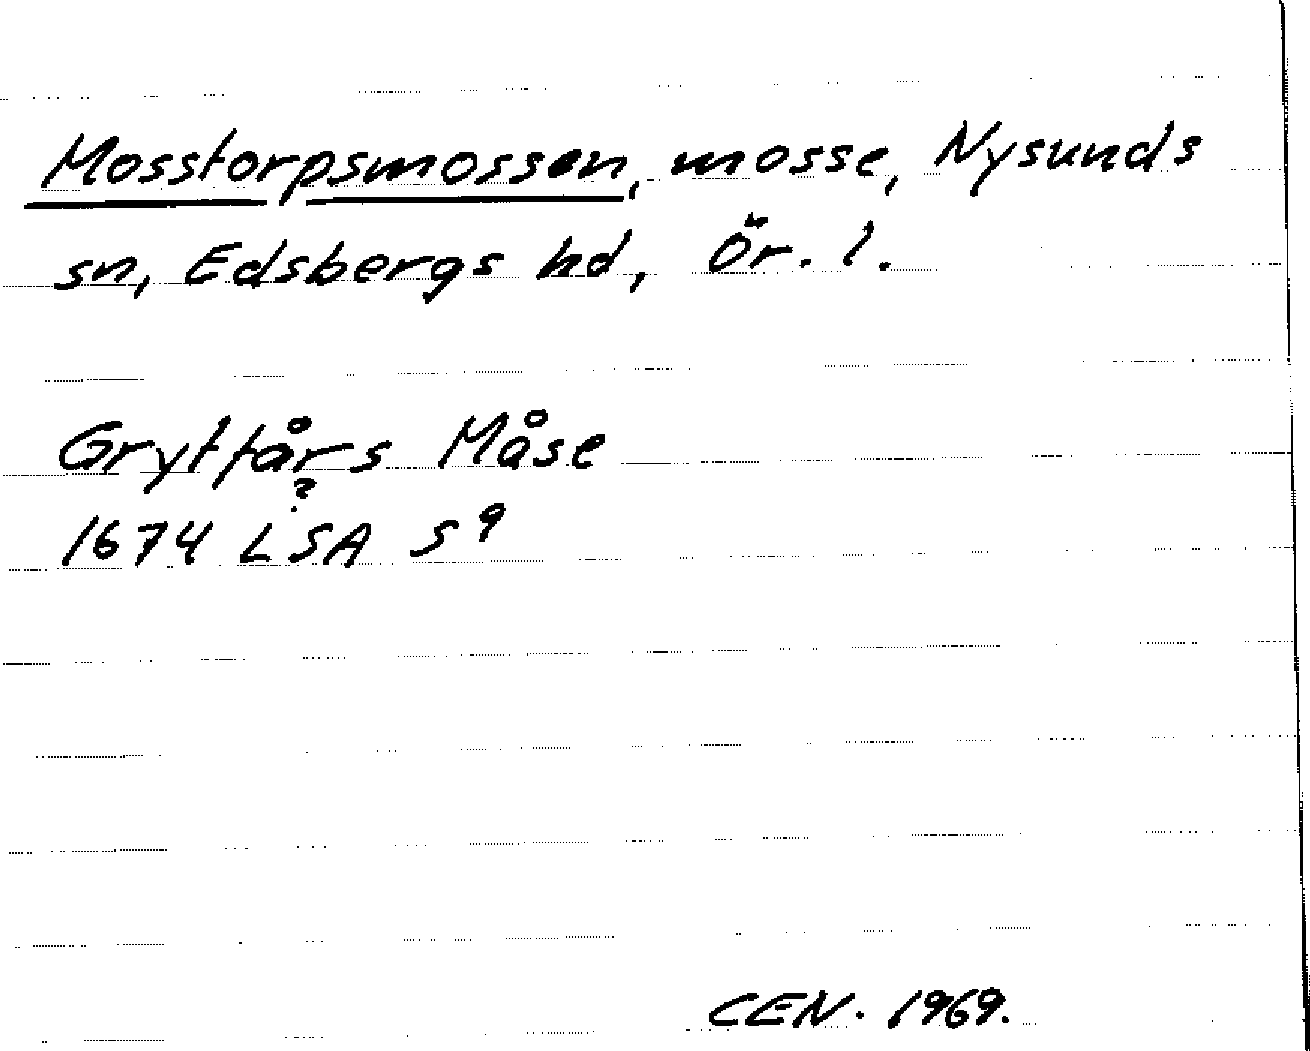 Mosstorpsmossen, mosse, Nysunds
sn, Edsbergs hd, Ör. l.
Grytfårs Måse
?
1674 LSA S 9
CEN. 1969.